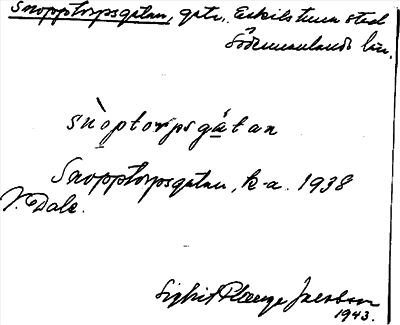 Snopptorpsgatan, gata, Eskilstuna stad
Södermanlands län.
snòptorpsgátan
Snopptorpsgatan, k-a. 1938
V. Dale.
Sigfrid Plenge Jacobson
1943.